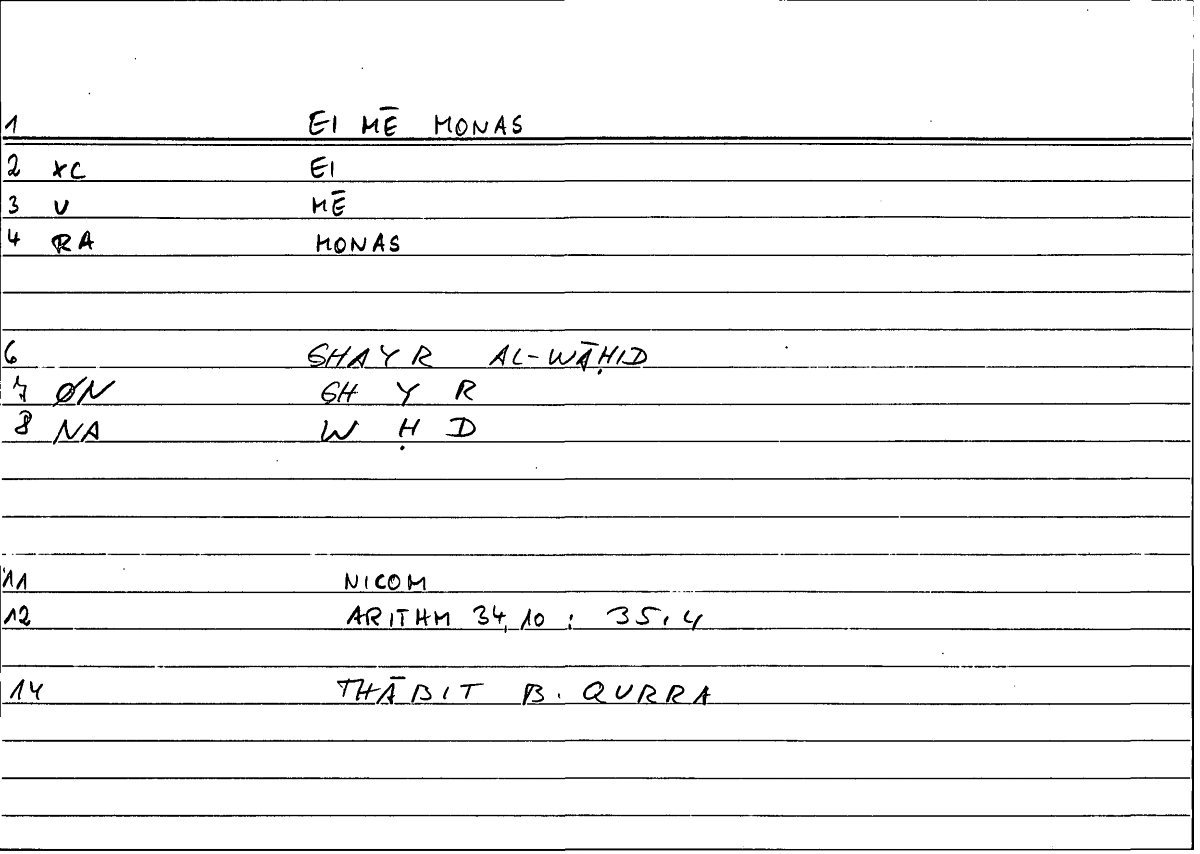 1 EI MĒ MONAS
2 XC EI
3 V MĒ
4 RA MONAS
6 GHAYR AL-WĀḤID
7 ØN GH Y R
8 NA W Ḥ D
11 NICOM
12 ARITHM 34,10 : 35.4
14 THĀBIT B. QURRA